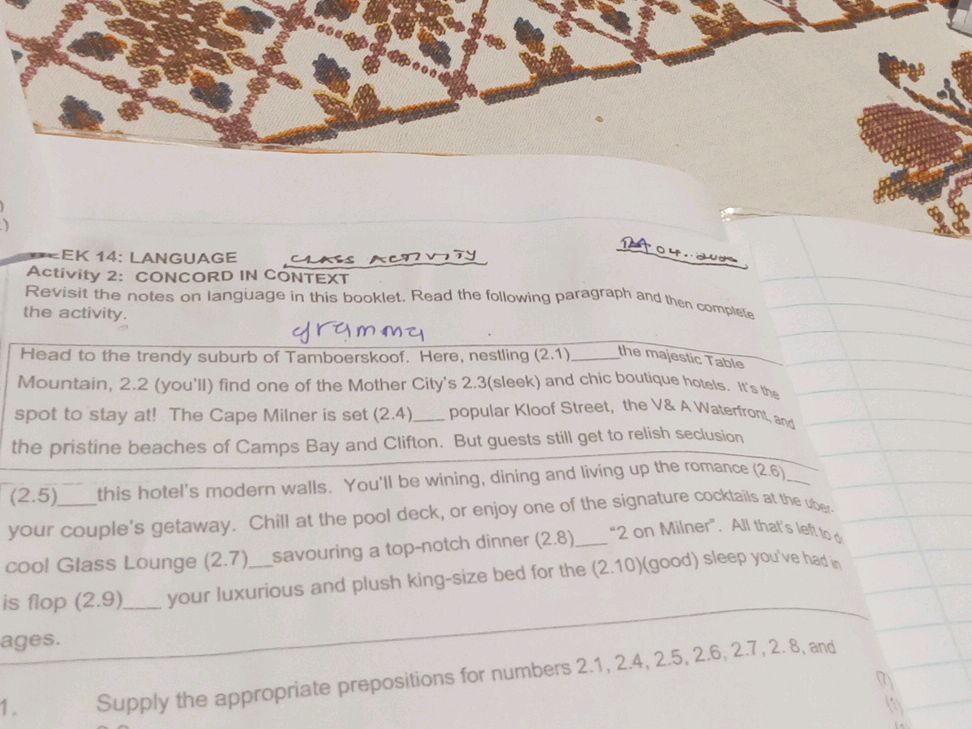 EK 14: LANGUAGE CLASS ACTIVITY 04..
Activity 2: CONCORD IN CONTEXT
Revisit the notes on language in this booklet. Read the following paragraph and then complete
the activity.
gramma
Head to the trendy suburb of Tamboerskoof. Here, nestling (2.1)_____the majestic Table
Mountain, 2.2 (you'll) find one of the Mother City's 2.3(sleek) and chic boutique hotels. It's the
spot to stay at! The Cape Milner is set (2.4)___ popular Kloof Street, the V& A Waterfront, and
the pristine beaches of Camps Bay and Clifton. But guests still get to relish seclusion
(2.5)____this hotel's modern walls. You'll be wining, dining and living up the romance (2.6)___
your couple's getaway. Chill at the pool deck, or enjoy one of the signature cocktails at the uber-
cool Glass Lounge (2.7)__savouring a top-notch dinner (2.8)____"2 on Milner". All that's left to
is flop (2.9)____ your luxurious and plush king-size bed for the (2.10)(good) sleep you've had in
ages.
1. Supply the appropriate prepositions for numbers 2.1, 2.4, 2.5, 2.6, 2.7, 2. 8, and
(7)